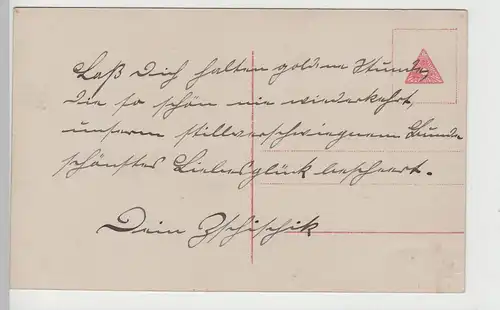 Laß Dich halten goldne Stunde,
die so schön nie wiederkehrt,
unserm stillverschwiegnem Bunde
schönstes Liebesglück bescheert.
Dein Zschischik